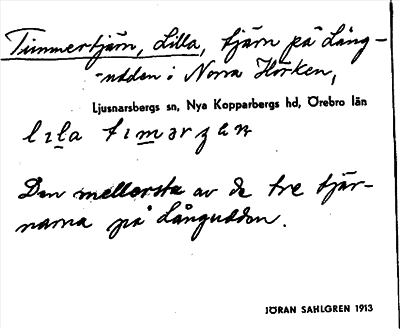 Timmertjärn, Lilla, tjärn på Lång-
-udden i Norra Hörken,
Ljusnarsbergs sn, Nya Kopparbergs hd, Örebro län
Den mellersta av de tre tjär-
narna på Långudden.
JÖRAN SAHLGREN 1913